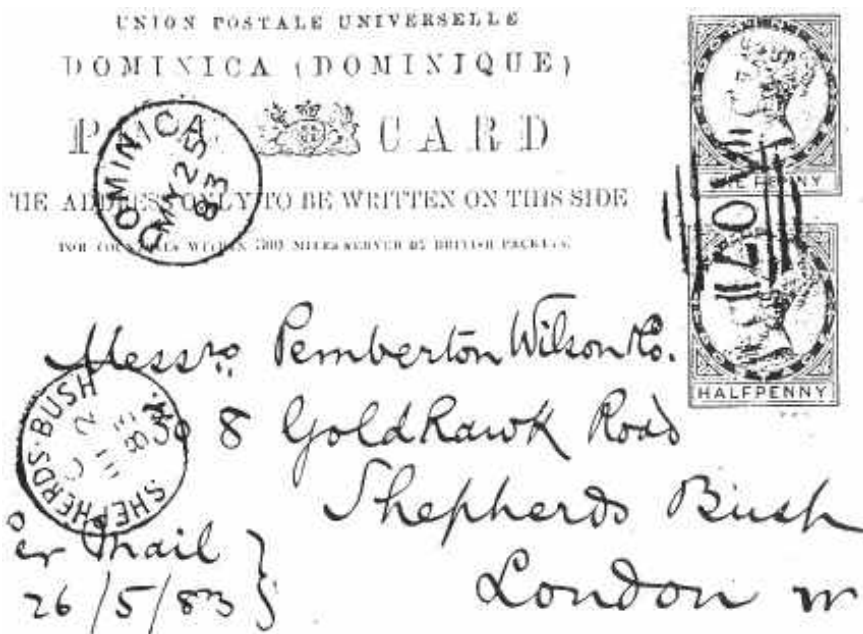 UNION POSTALE UNIVERSELLE
DOMINICA (DOMINIQUE)
CARD
THE ADDRESS ONLY TO BE WRITTEN ON THIS SIDE
FOR COUNTRIES WITHIN 300 MILES SERVED BY BRITISH PACKETS
DOMINICA
MY 25
83
ONE PENNY
A07
HALFPENNY
Messrs. Pemberton Wilson & Co.
No 8 Goldhawk Road
Shepherds Bush
London W
SHEPHERDS-BUSH
83
er Mail
26/5/83